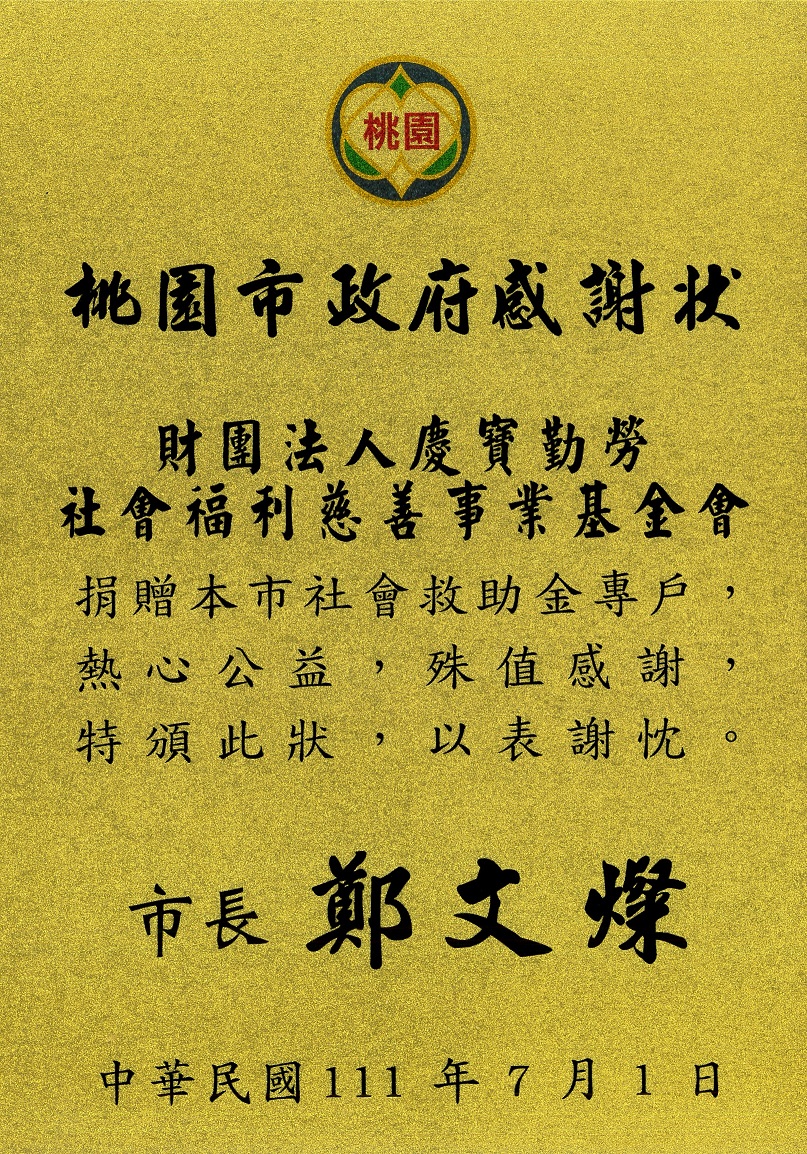 桃園
桃園市政府感謝狀
財團法人慶寶勤勞
社會福利慈善事業基金會
捐贈本市社會救助金專戶，
熱心公益，殊值感謝，
特頒此狀，以表謝忱。
市長 鄭文燦
中華民國111年7月1日